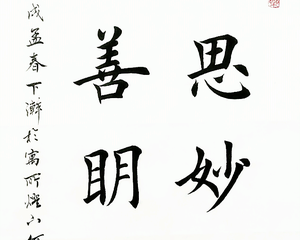 思妙
善眀
戌孟春下澣於寓所燈下